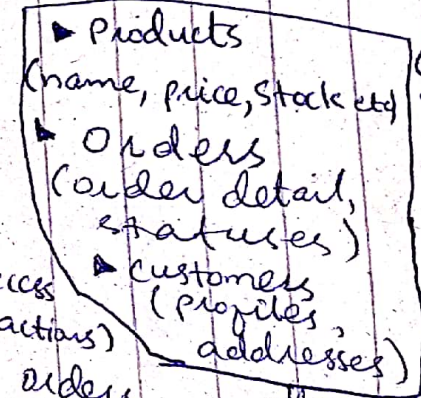 ▶ Products
(name, price, Stock etc)
▶ Orders
(order detail,
statuses)
▶ Customers
(profiles,
addresses)
actions)
orders